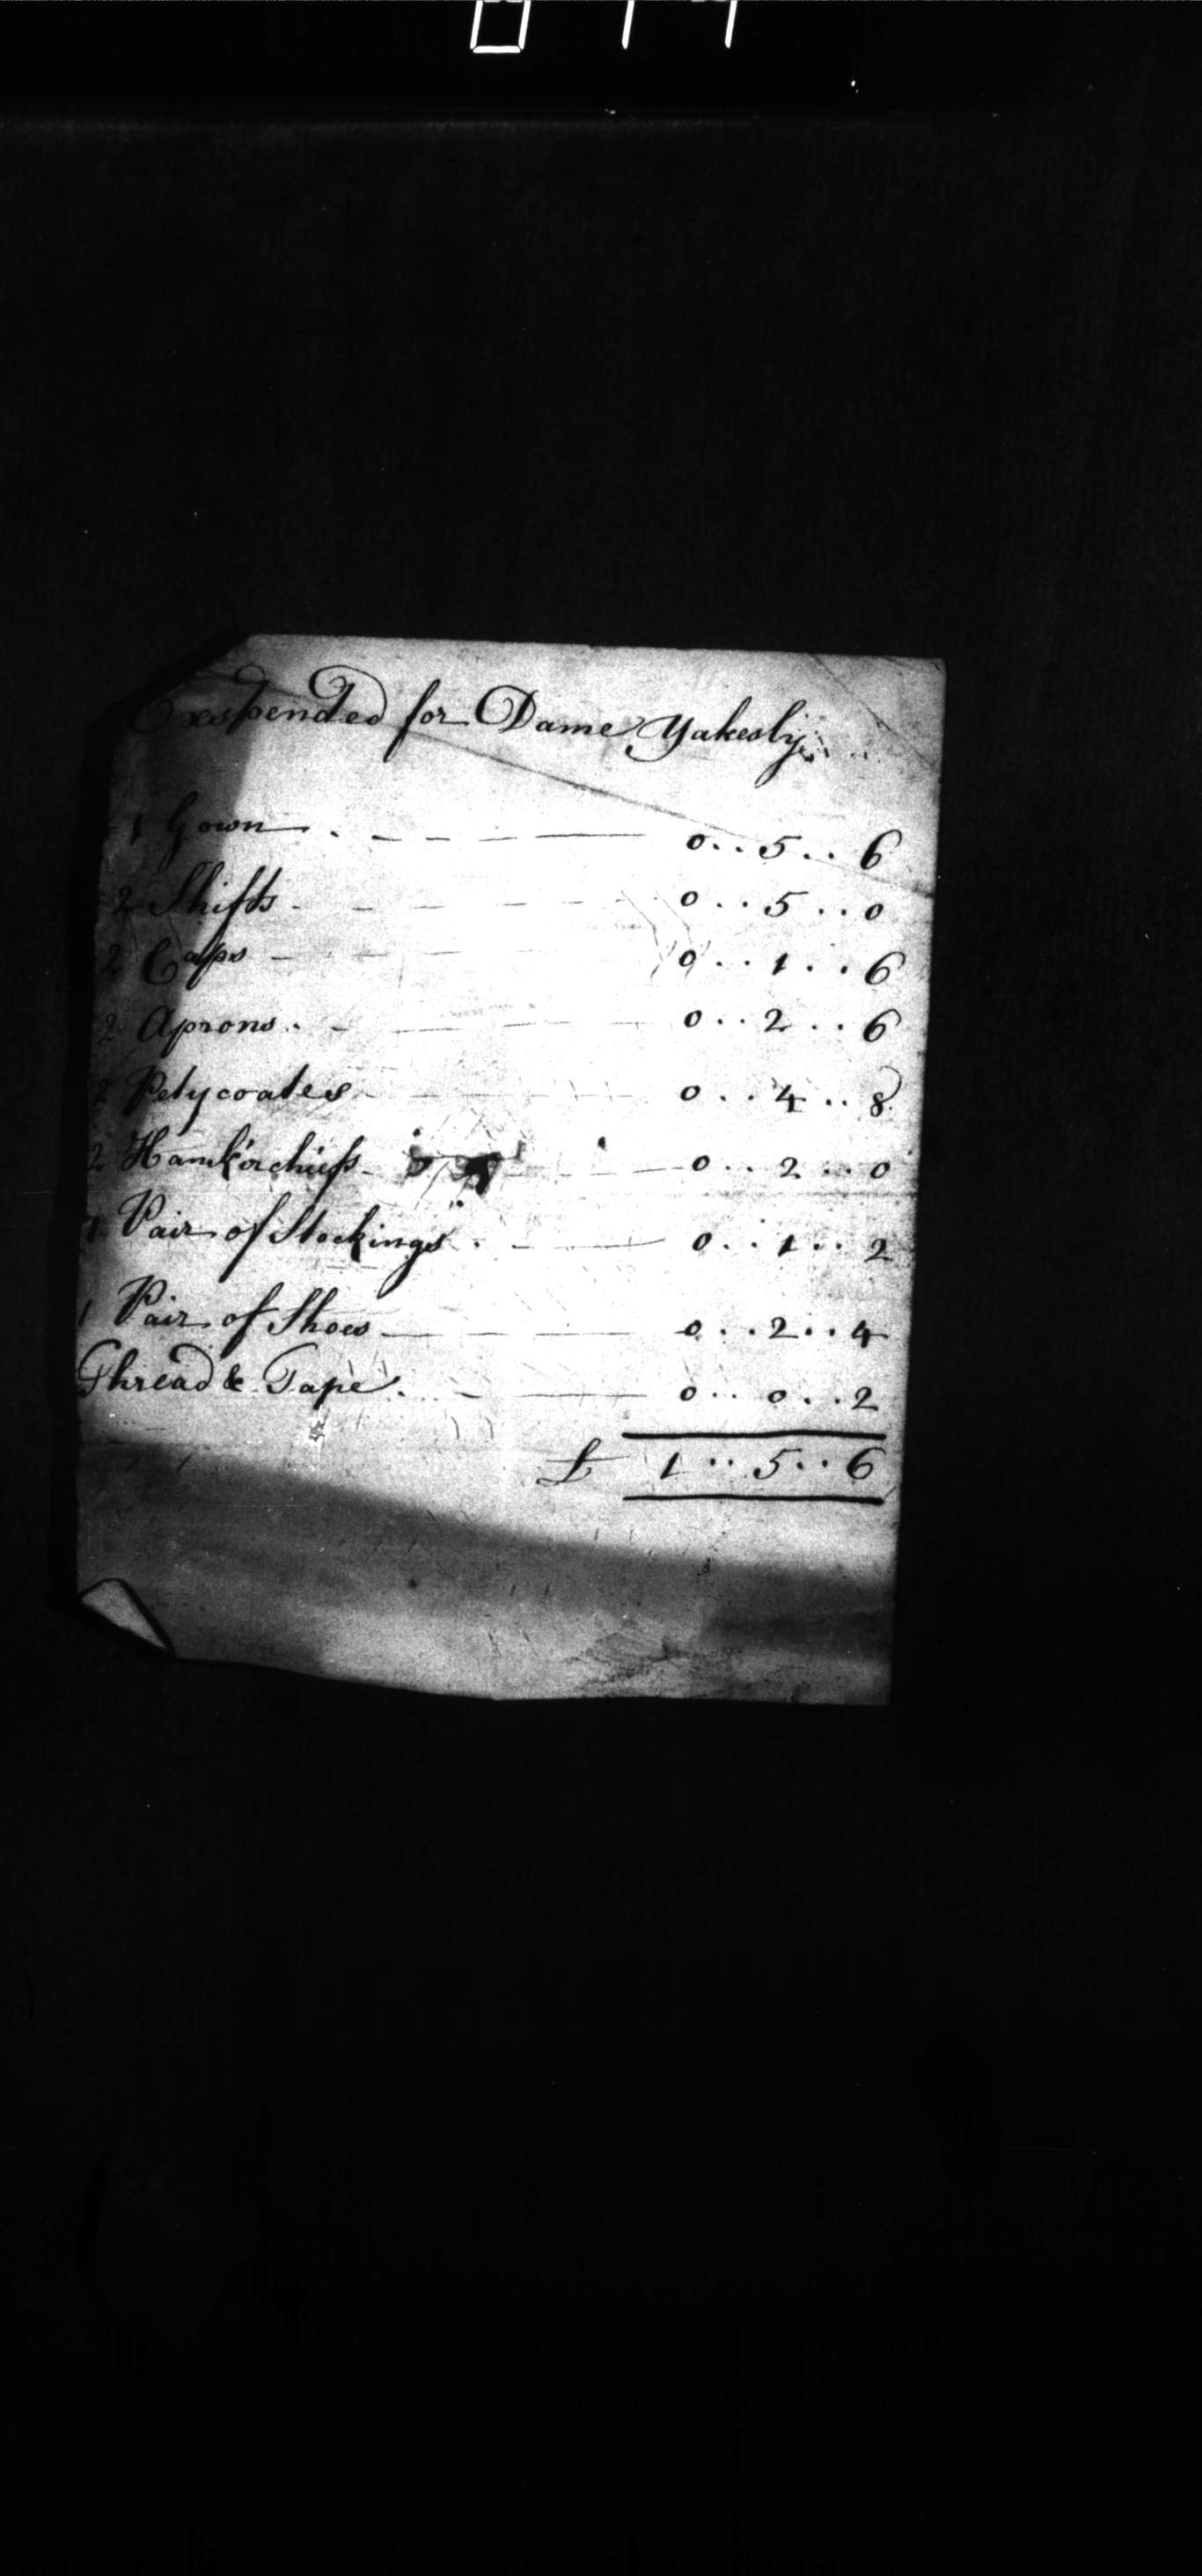 Exspended for Dame Yakesly
1 Gown 0..5..6
2 Shifts 0..5..0
2 Caps 0..1..6
2 Aprons 0..2..6
2 Petycoates 0..4..8
2 Hamkörchiefs 0..2..0
1 Pair of Stockings 0..1..2
1 Pair of Shoes 0..2..4
Thread & Tape 0..0..2
£ 1..5..6